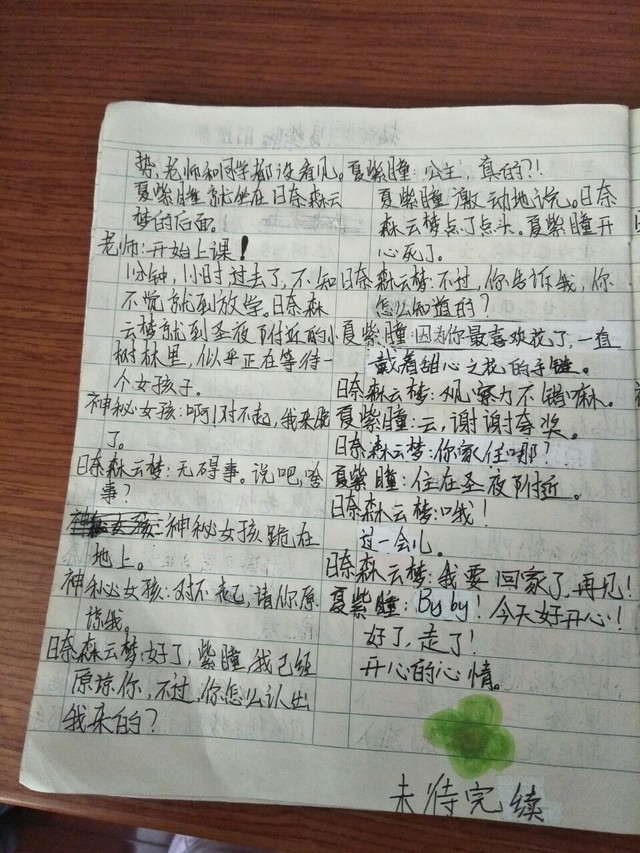 势,老师和同学都没看见。
夏紫瞳就坐在日奈森云
梦的后面。
老师:开始上课!
1分钟,1小时过去了,不知
不觉就到放学。日奈森
云梦就到圣夜附近的小
树林里,似乎正在等待一
个女孩子。
神秘女孩:啊!对不起,我来晚
了。
日奈森云梦:无碍事。说吧,啥
事?
神秘女孩跪在
地上。
神秘女孩:对不起,请你原
谅我。
日奈森云梦:好了,紫瞳,我已经
原琼你,不过,你怎么认出
我来的?
夏紫瞳:公主,真的?!
夏紫瞳激动地说。日奈
森云梦点了点头。夏紫瞳开
心死了。
日奈森云梦:不过,你告诉我,你
怎么知道的?
夏紫瞳:因为你最喜欢花了,一直
戴着甜心之花的手链。
日奈森云梦:观察力不错嘛。
夏紫瞳:云,谢谢夸奖。
日奈森云梦:你家住哪?
夏紫瞳:住在圣夜附近。
日奈森云梦:哦!
过一会儿。
日奈森云梦:我要回家了,再见!
夏紫瞳:By by!今天好开心!
好了,走了!
开心的心情。
未待完续